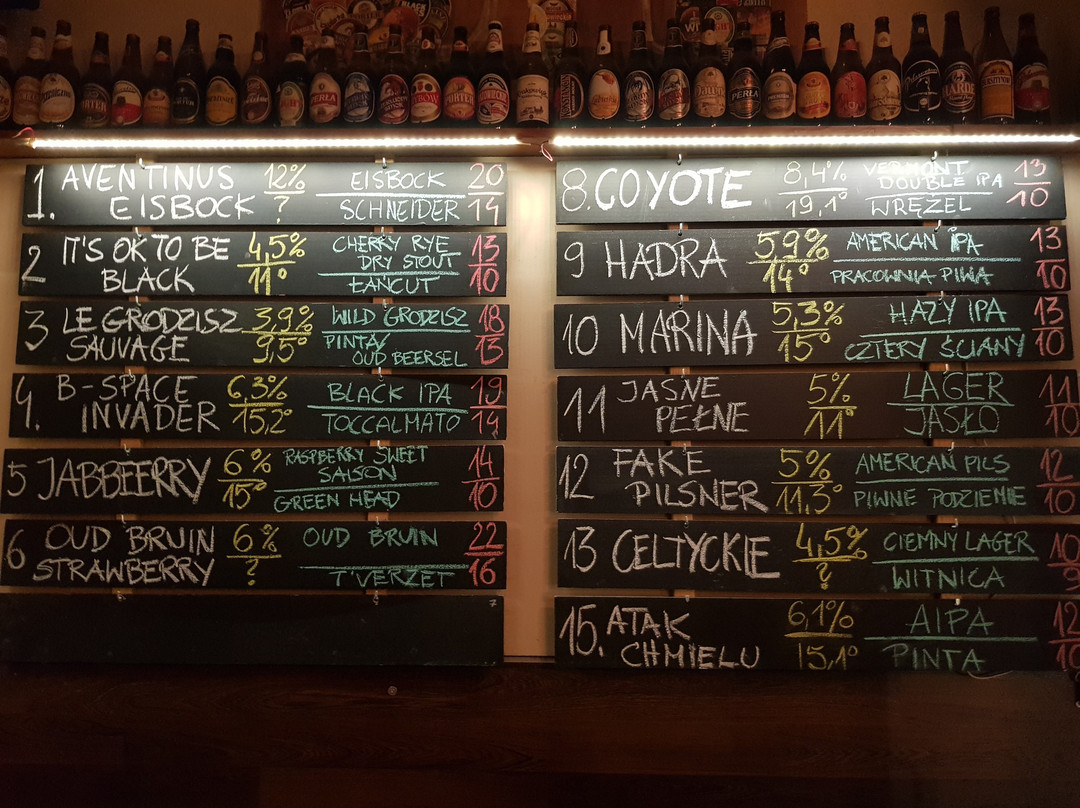 1. AVENTINUS EISBOCK 12% ? EISBOCK SCHNEIDER 20 14
2 IT'S OK TO BE BLACK 4,5% 11° CHERRY RYE DRY STOUT ŁAŃCUT 13 10
3 LE GRODZISZ SAUVAGE 3,9% 9,5° WILD GRODZISZ PINTA/ OUD BEERSEL 18 13
4. B-SPACE INVADER 6,3% 15,2° BLACK IPA TOCCALMATO 19 14
5 JABBEERRY 6% 15° RASPBERRY SWEET SAISON GREEN HEAD 14 10
6 OUD BRUIN STRAWBERRY 6% ? OUD BRUIN T'VERZET 22 16
7
8. COYOTE 8,4% 19,1° VERMONT DOUBLE IPA WRĘŻEL 13 10
9 HADRA 5,9% 14° AMERICAN IPA PRACOWNIA PIWA 13 10
10 MARINA 5,3% 15° HAZY IPA CZTERY ŚCIANY 13 10
11 JASNE PEŁNE 5% 11° LAGER JASŁO 11 10
12 FAKE PILSNER 5% 11,3° AMERICAN PILS PIWNE PODZIEMIE 12 10
13 CELTYCKIE 4,5% ? CIEMNY LAGER WITNICA 10 9
15. ATAK CHMIELU 6,1% 15,1° AIPA PINTA 12 10
PERŁA
PORTER
PERŁA